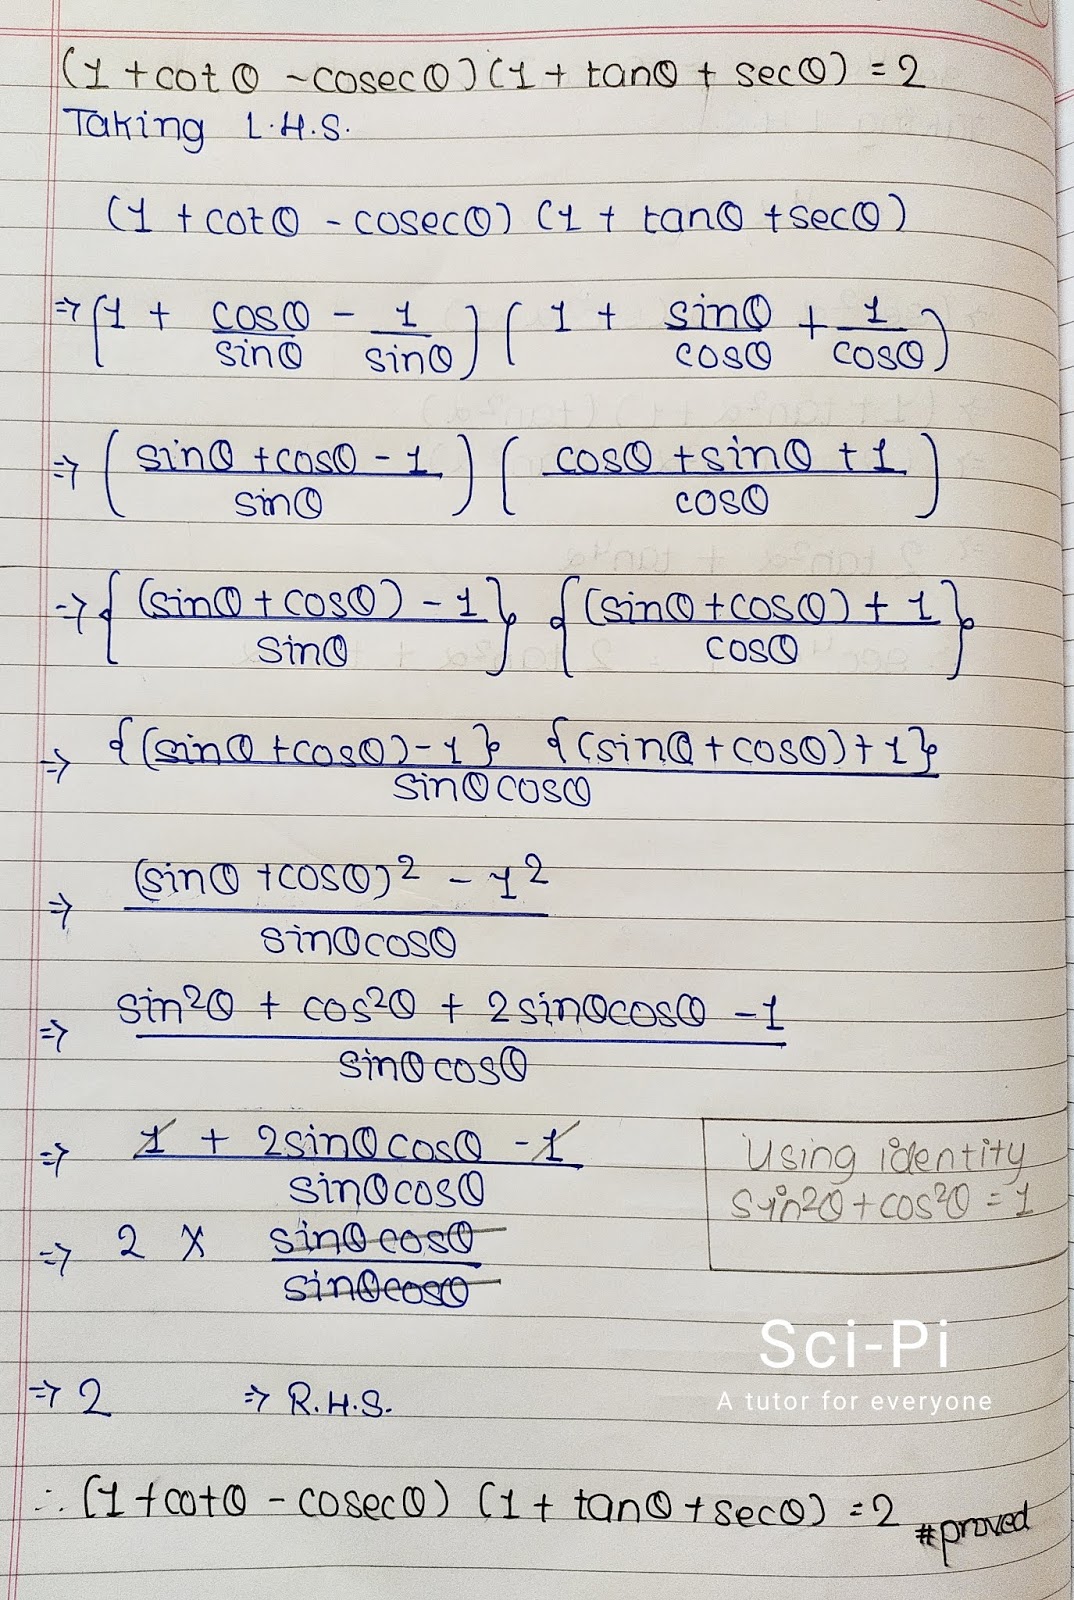 (1 + cot θ - cosec θ) (1 + tanθ + secθ) = 2
Taking L.H.S.
(1 + cotθ - cosecθ) (1 + tanθ + secθ)
⇒ (1 + cosθ/sinθ - 1/sinθ) (1 + sinθ/cosθ + 1/cosθ)
⇒ ((sinθ + cosθ - 1)/sinθ) ((cosθ + sinθ + 1)/cosθ)
⇒ {((sinθ + cosθ) - 1)/sinθ} {((sinθ + cosθ) + 1)/cosθ}
⇒ {(sinθ + cosθ) - 1} {(sinθ + cosθ) + 1}/sinθ cosθ
⇒ ((sinθ + cosθ)² - 1²)/sinθ cosθ
⇒ (sin²θ + cos²θ + 2 sinθ cosθ - 1)/sinθ cosθ
⇒ (1 + 2 sinθ cosθ - 1)/sinθ cosθ
Using identity
sin²θ + cos²θ = 1
⇒ 2 × sinθ cosθ/sinθ cosθ
⇒ 2 ⇒ R.H.S.
Sci-Pi
A tutor for everyone
∴ (1 + cotθ - cosecθ) (1 + tanθ + secθ) = 2 #proved